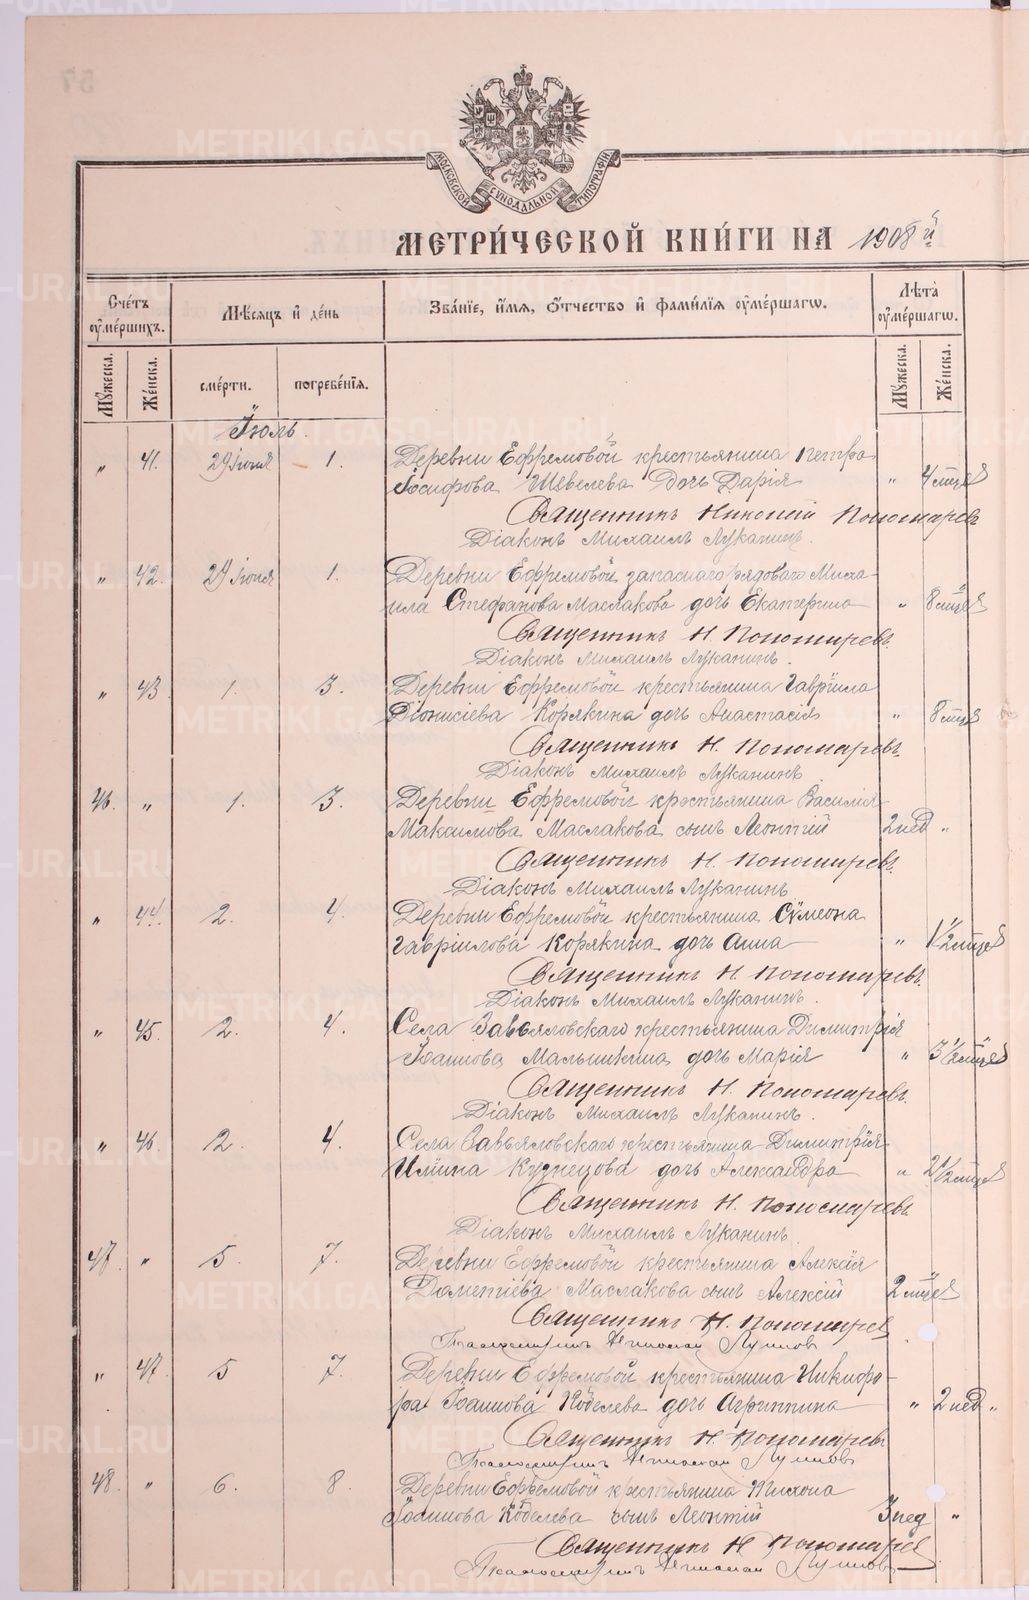 МОСКОВСКОЙ СѴНОДАЛЬНОЙ ТИПОГРАФІИ
МЕТРИ́ЧЕСКОЙ КНИ́ГИ НА 1908й
Сче́тъ ᲂу҆ме́ршихъ.
Мѣ́сяцъ и҆ де́нь
Зва́нїе, и҆́мя, ѻ҆́тчество и҆ фами́лїя ᲂу҆ме́ршагѡ.
Лѣ́та ᲂу҆ме́ршагѡ.
Мꙋ́жеска. Же́нска. сме́рти. погребе́нїя. Мꙋ́жеска. Же́нска.
Іюль.
" 41. 29 Іюня 1. Деревни Ефремовой крестьянина Петра
Іосифова Шевелева дочь Дарія " 4 мцев
Священникъ Николай Пономарев
Діаконъ Михаилъ Луканинъ.
" 42. 29 Іюня 1. Деревни Ефремовой запаснаго рядоваго Миха-
ила Стефанова Маслакова дочь Екатерина " 8 мцев
Священникъ Н. Пономаревъ.
Діаконъ Михаилъ Луканинъ.
" 43 1. 3. Деревни Ефремовой крестьянина Гавріила
Діонисіева Корякина дочь Анастасія " 8 мцев
Священникъ Н. Пономаревъ.
Діаконъ Михаилъ Луканинъ
46. " 1. 3. Деревни Ефремовой крестьянина Василія
Максимова Маслакова сынъ Леонтій 2 нед "
Священникъ Н. Пономаревъ.
Діаконъ Михаилъ Луканинъ
" 44. 2. 4. Деревни Ефремовой крестьянина Сѵмеона
Гавріилова Корякина дочь Анна " 1 1/2 мцев
Священникъ Н. Пономаревъ.
Діаконъ Михаилъ Луканинъ.
" 45. 2. 4. Села Завьяловскаго крестьянина Димитрія
Іоаннова Малышкина дочь Марія " 3 1/2 мцев
Священникъ Н. Пономаревъ.
Діаконъ Михаилъ Луканинъ.
" 46. 2. 4. Села Завьяловскаго крестьянина Димитрія
Иліина Кузнецова дочь Александра " 2 1/2 мцев
Священникъ Н. Пономаревъ.
Діаконъ Михаилъ Луканинъ.
47. " 5. 7. Деревни Ефремовой крестьянина Алексія
Маслакова сынъ Алексій 2 мцев
Священникъ Н. Пономарев
Псаломщикъ
" 47. 5 7. Деревни Ефремовой крестьянина Никифо-
ра Іоаннова Кобелева дочь Агриппина " 2 нед "
Священникъ Н. Пономаревъ
Псаломщикъ
48. " 6. 8. Деревни Ефремовой крестьянина Тихона
Іоаннова Кобелева сынъ Леонтій 3 нед "
Священникъ Н. Пономарев
Псаломщикъ
METRIKI.GASO-URAL.RU